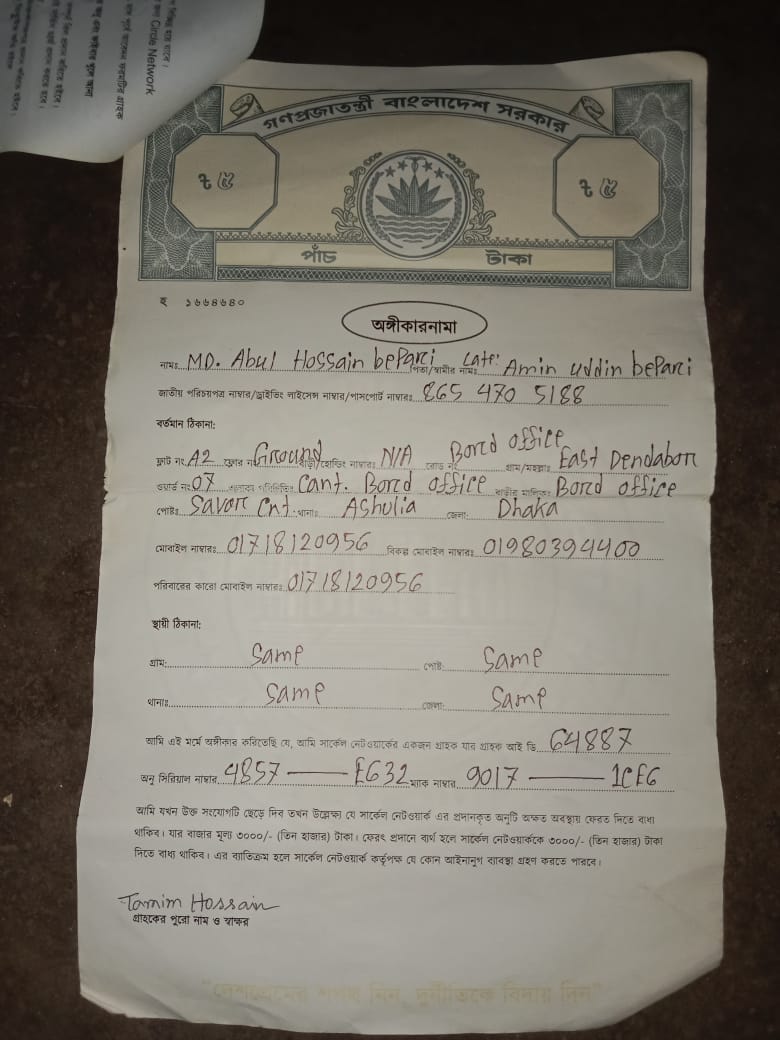 Circle Network
গণপ্রজাতন্ত্রী বাংলাদেশ সরকার
৳ ৫ ৳ ৫
পাঁচ টাকা
হ ১৬৬৪৬৪০
অঙ্গীকারনামা
নামঃ MD. Abul Hossain beparci পিতা/স্বামীর নামঃ Late: Amin uddin beparci
জাতীয় পরিচয়পত্র নাম্বার/ড্রাইভিং লাইসেন্স নাম্বার/পাসপোর্ট নাম্বারঃ 865 470 5188
বর্তমান ঠিকানা:
ফ্লাট নং A2 ফ্লোর নং Ground বাড়ী/হোল্ডিং নাম্বারঃ N/A রোড নং Borcd office গ্রাম/মহল্লাঃ East Dendabor
ওয়ার্ড নং 07 এলাকা পরিচিতিঃ Cant. Borcd office বাড়ীর মালিকঃ Borcd office
পোষ্টঃ Savar Cnt. থানাঃ Ashulia জেলা: Dhaka
মোবাইল নাম্বারঃ 01718120956 বিকল্প মোবাইল নাম্বারঃ 01980394400
পরিবারের কারো মোবাইল নাম্বারঃ 01718120956
স্থায়ী ঠিকানা:
গ্রাম: Same পোষ্ট: Same
থানাঃ Same জেলা: Same
আমি এই মর্মে অঙ্গীকার করিতেছি যে, আমি সার্কেল নেটওয়ার্কের একজন গ্রাহক যার গ্রাহক আই ডি 64887
অনু সিরিয়াল নাম্বার 4857 — E632 ম্যাক নাম্বার 9017 — 1CE6
আমি যখন উক্ত সংযোগটি ছেড়ে দিব তখন উল্লেক্ষ্য যে সার্কেল নেটওয়ার্ক এর প্রদানকৃত অনুটি অক্ষত অবস্থায় ফেরত দিতে বাধ্য
থাকিব। যার বাজার মূল্য ৩০০০/- (তিন হাজার) টাকা। ফেরৎ প্রদানে ব্যর্থ হলে সার্কেল নেটওয়ার্ককে ৩০০০/- (তিন হাজার) টাকা
দিতে বাধ্য থাকিব। এর ব্যতিক্রম হলে সার্কেল নেটওয়ার্ক কর্তৃপক্ষ যে কোন আইনানুগ ব্যাবস্থা গ্রহণ করতে পারবে।
Tamim Hossain
গ্রাহকের পুরো নাম ও স্বাক্ষর
"দেশপ্রেমের শপথ নিন, দুর্নীতিকে বিদায় দিন"